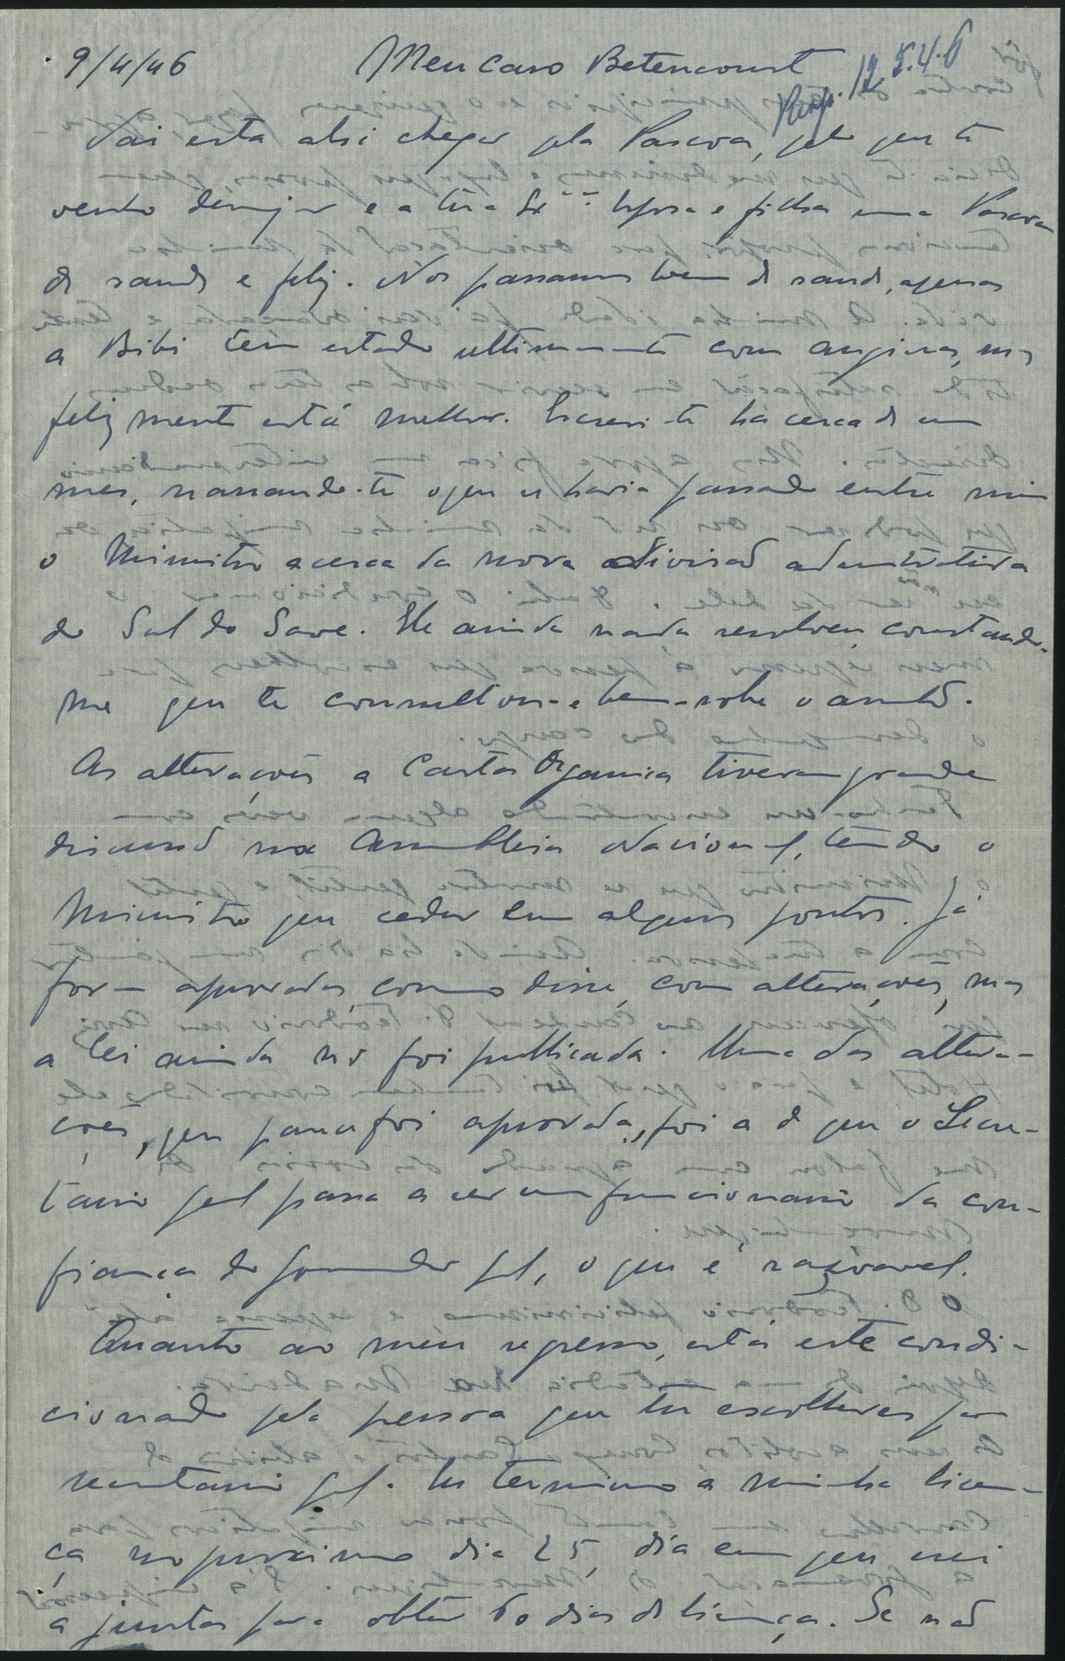 9/4/46 Meu caro Betencourt
Resp. 12.5.4.6
Vai esta ahi chegar pela Pascoa, pelo que te
venho desejar e a tua Exma Esposa e filha uma Pascoa
de saude e feliz. Nós passamos bem de saude, apenas
a Bibi tem estado ultimamente com anginas, mas
felizmente está melhor. Escrevi-te ha cerca de um
mes, narrando-te o que se havia passado entre mim
o Ministro acerca da nova divisão administrativa
do Sul do Save. Ele ainda nada resolveu, constando-
me que te consultou-e bem-sobre o assunto.
As alterações a Carta Organica tiveram grande
discussão na Assembleia Nacional, tendo o
Ministro que ceder em alguns pontos. Já
foram aprovadas, como disse, com alterações, mas
a lei ainda não foi publicada. Uma das altera-
ções, que parece foi aprovada, foi a de que o Secre-
tario geral passa a ser um funcionario da con-
fiança do Governador geral, o que é razoavel.
Quanto ao meu regresso, está este condi-
cionado pela pessoa que tu escolheres para
secretario geral. Eu termino a minha licen-
ça no proximo dia 25, dia em que irei
a junta para obter 60 dias de licença. Se não